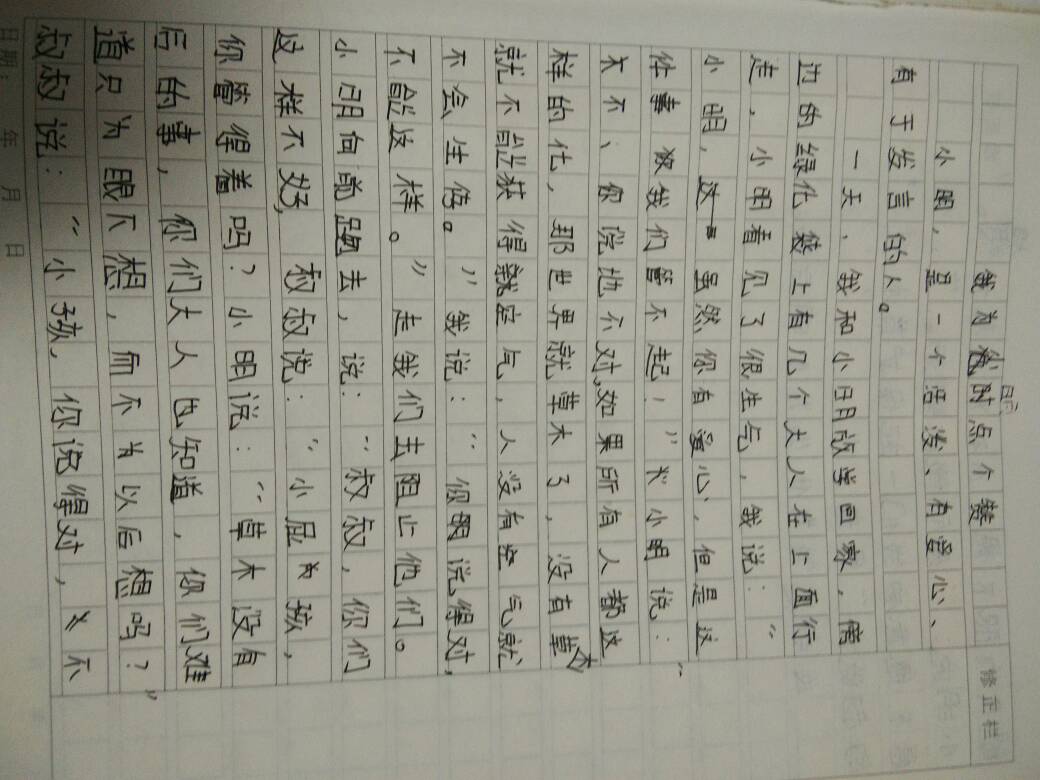 我为他点个赞
小明,是一个活泼、有爱心、
有于发言的人。
一天,我和小明放学回家,傍
边的绿化带上有几个大人在上面行
走,小明看见了很生气,我说:“
小明,虽然你有爱心,但是这
件事 我们管不起!”小明说:“
不不、你说地不对,如果所有人都这
样的化,那世界就草木了,没有草木
就不能获得空气,人没有空气就
不会生活。”我说:“小明说得对,
不能这样。”走我们去阻止他们。
小明向前跑去,说:“叔叔,你们
这样不好,叔叔说:“小屁孩,
你管得着吗?小明说:“草木没有
后的事,你们大人也知道,你们难
道只为眼下想,而不为以后想吗?”
叔叔说:“小孩,你说得对,不
修正栏
日期: 年 月 日